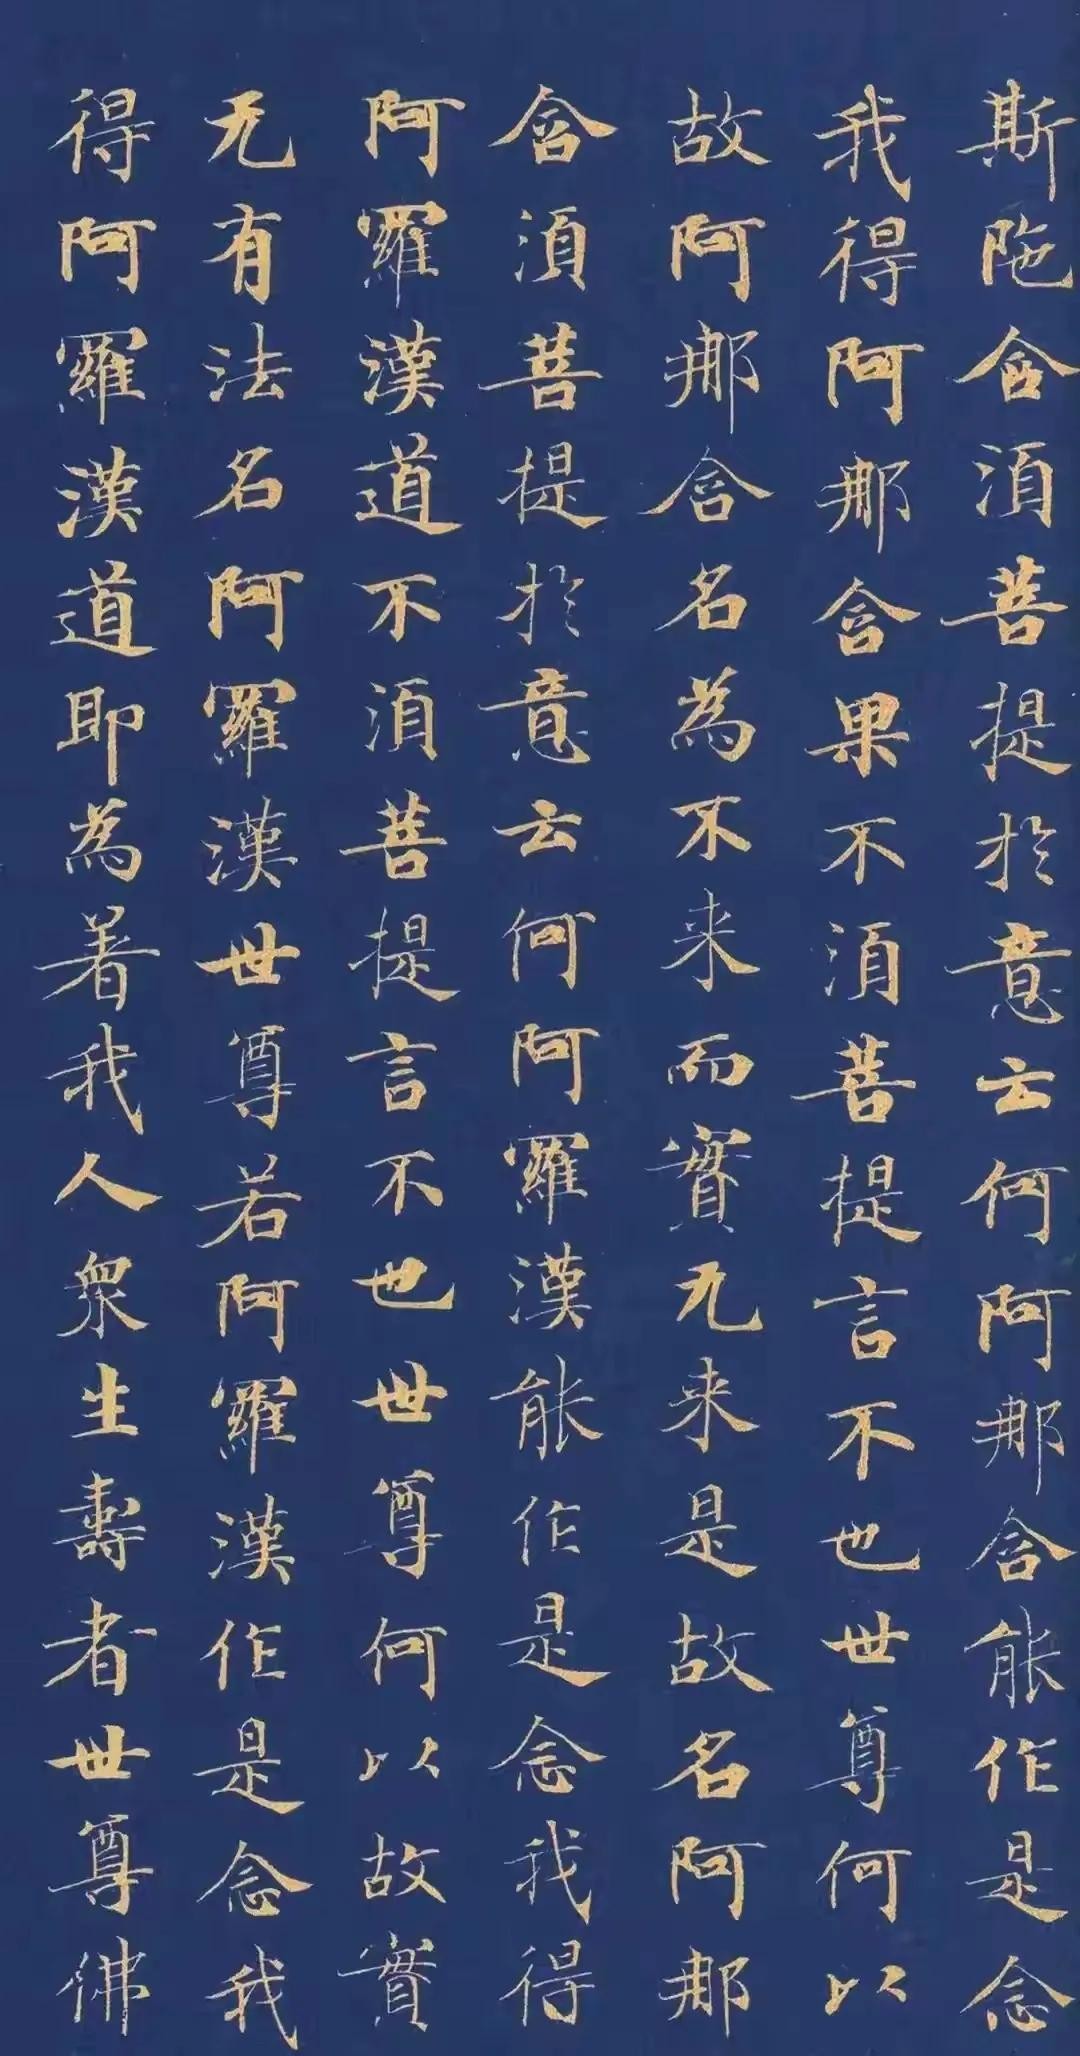 斯陁含須菩提於意云何阿那含能作是念
我得阿那含果不須菩提言不也世尊何以
故阿那含名為不来而實无来是故名阿那
含須菩提於意云何阿羅漢能作是念我得
阿羅漢道不須菩提言不也世尊何以故實
无有法名阿羅漢世尊若阿羅漢作是念我
得阿羅漢道即為著我人衆生壽者世尊佛